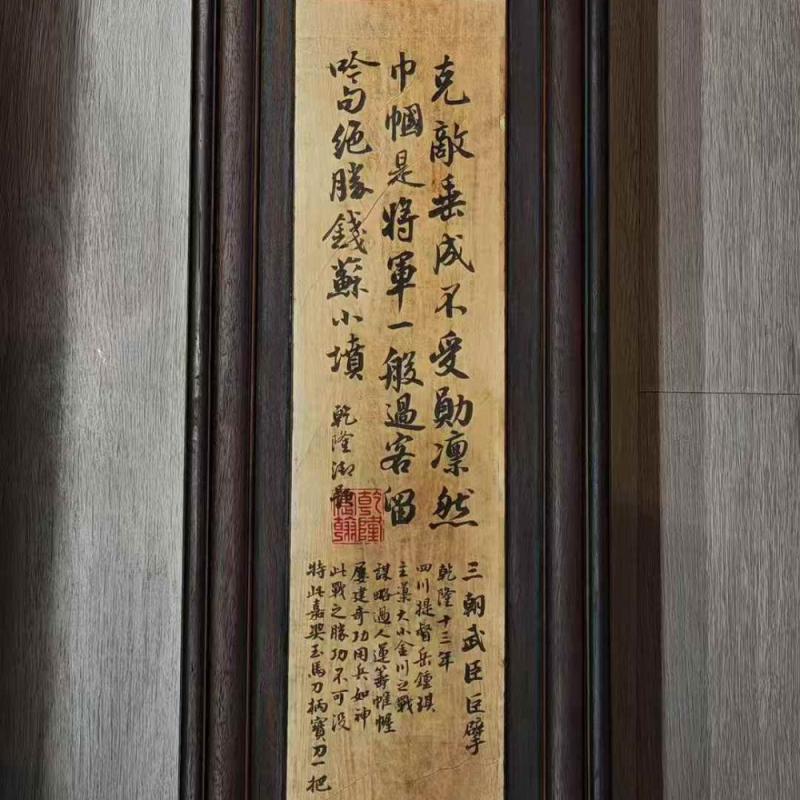 克敵垂成不受勛凜然
巾幗是將軍一般過客留
吟句絕勝錢蘇小墳
乾隆御題
乾隆
宸翰
三朝武臣巨擘
乾隆十三年
四川提督岳鍾琪
主藁大小金川之戰
謀略過人運籌帷幄
屢建奇功用兵如神
此戰之勝功不可没
特此嘉奬玉馬刀柄寳刀一把